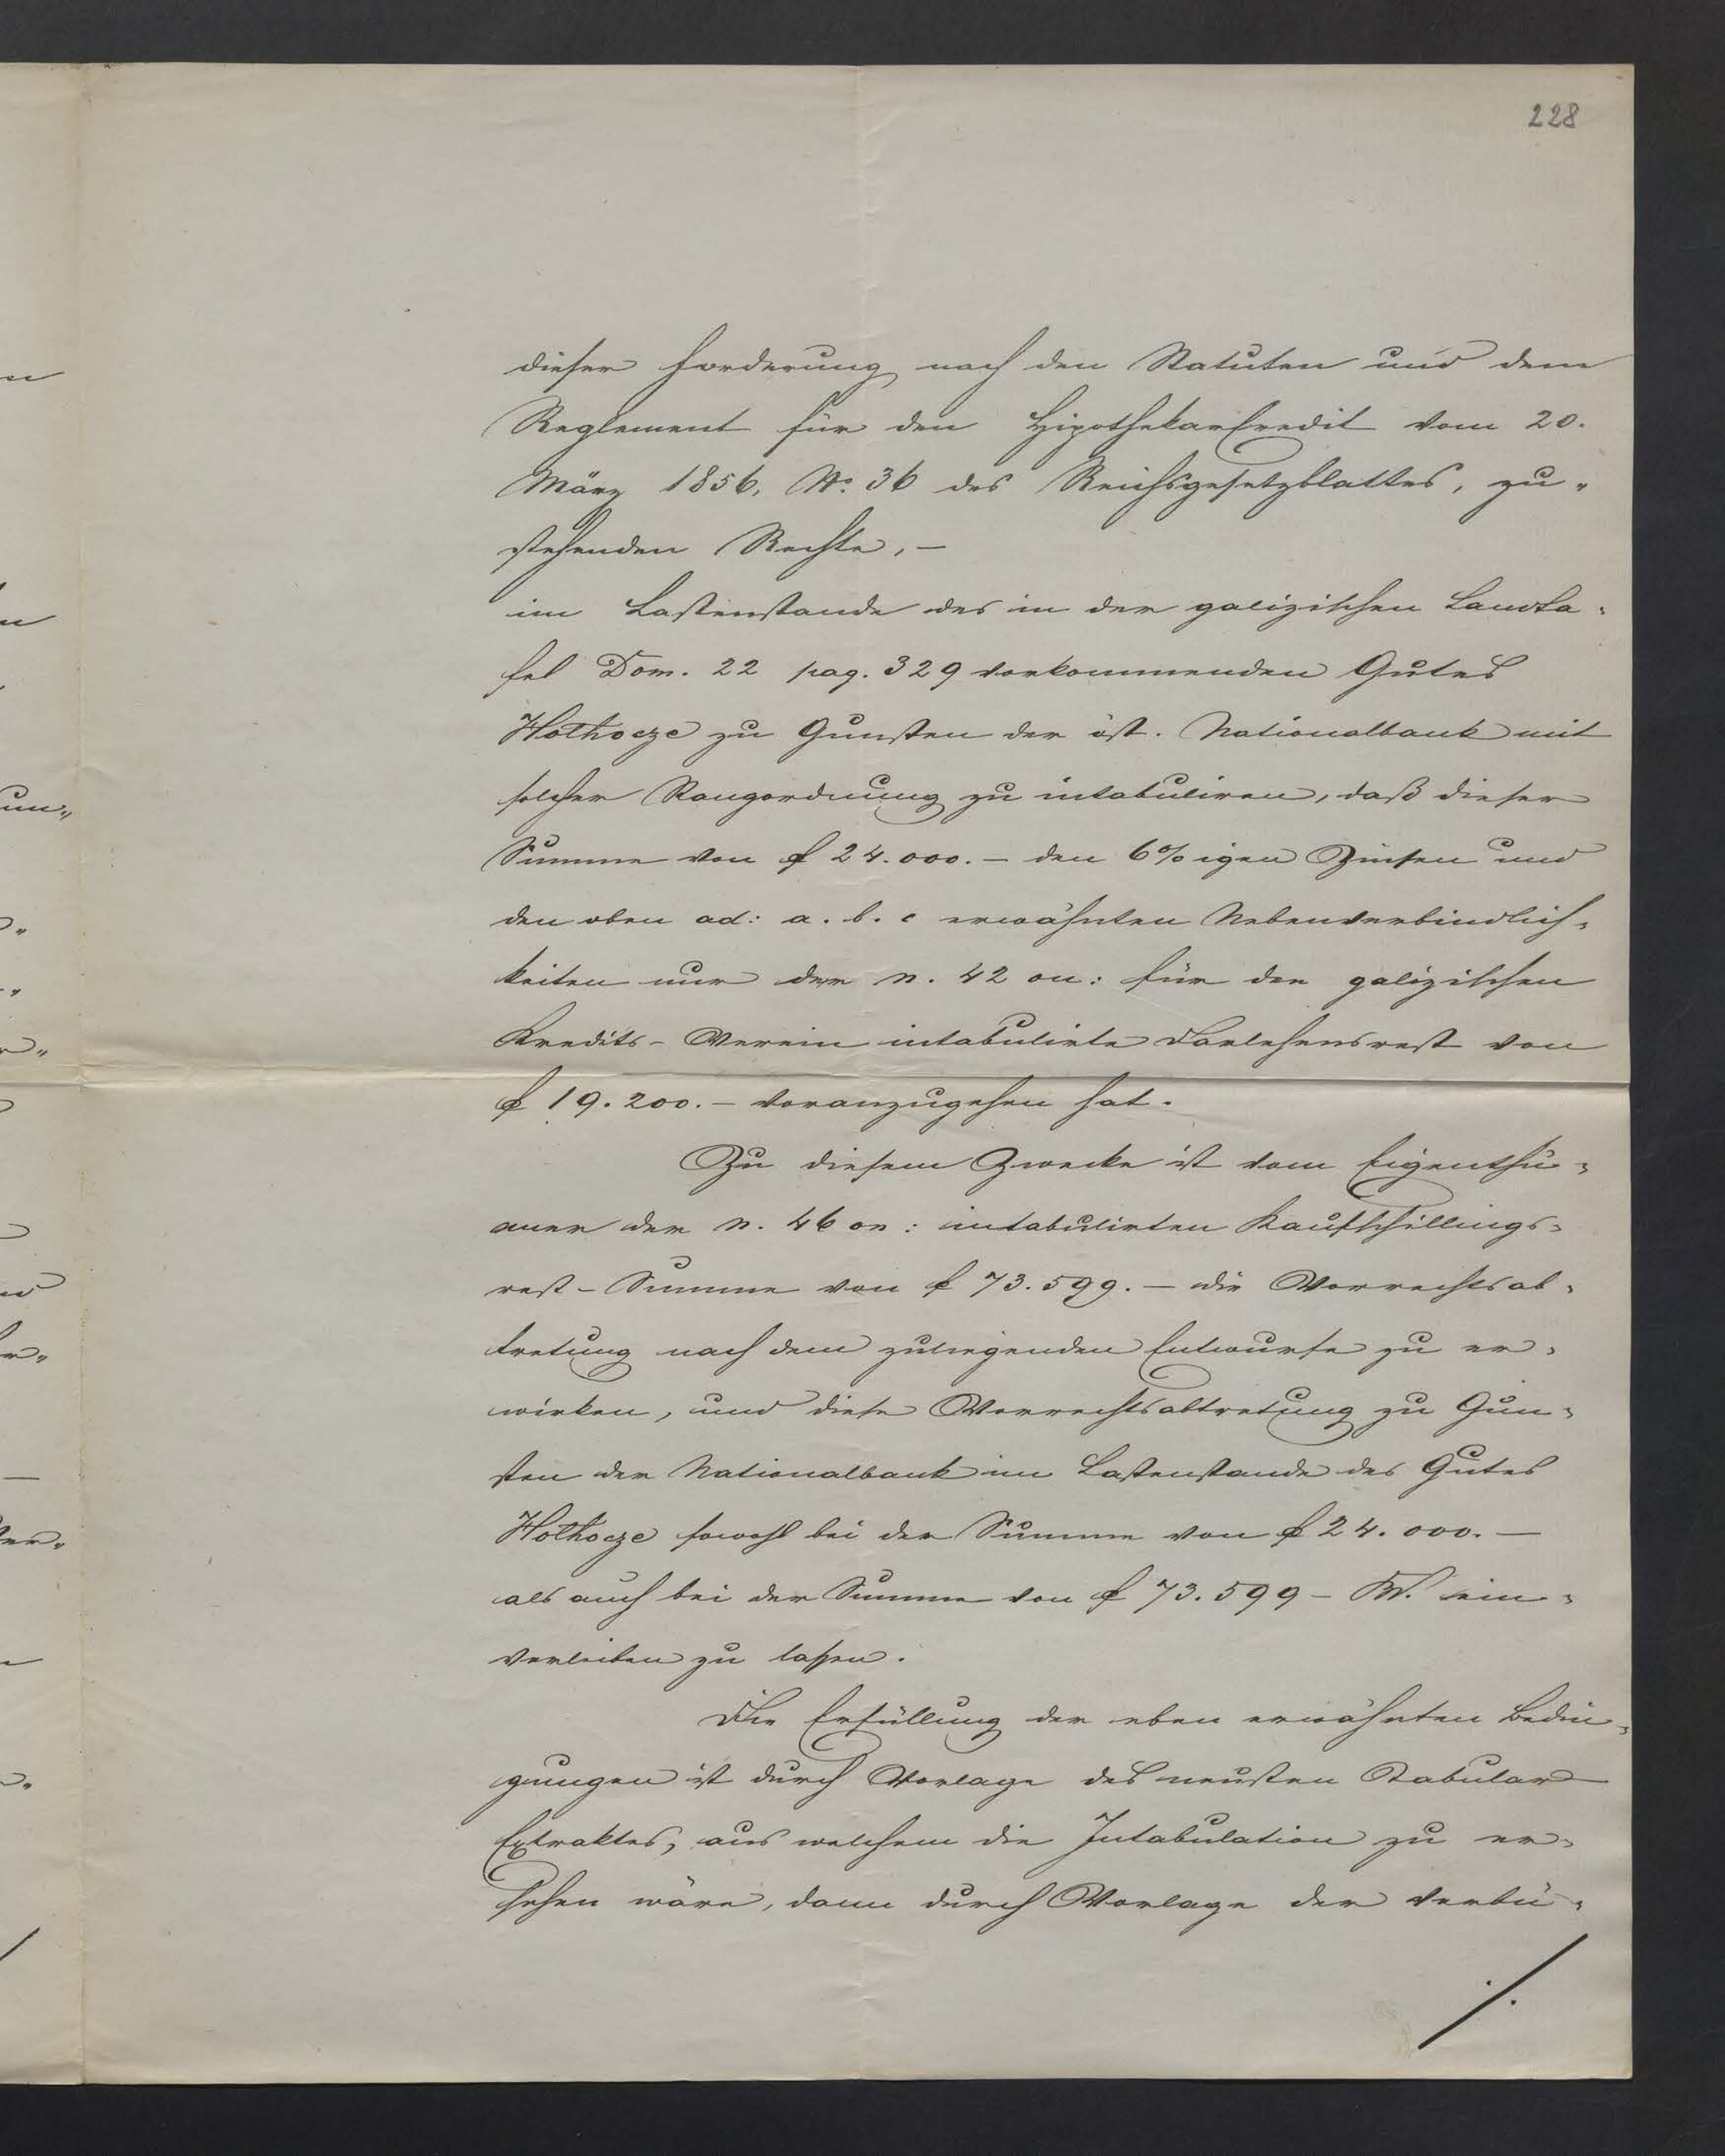 228
dieser Forderung nach den Statuten und dem
Reglement für den HipothekarCredit vom 20.
März 1856, No. 36 des Reichsgesetzblattes, zu„
stehenden Rechte, —
im Lastenstande des in der galizischen Landta„
fel Dom. 22 pag. 329 vorkommenden Gutes
Hołhocze zu Gunsten der öst. Nationalbank mit
solcher Rangordnung zu intabuliren, daß dieser
Summe von f 24.000.— den 6%igen Zinsen und
den oben ad: a. b. c erwähnten Nebenverbindlich„
keiten nur der n. 42 on: für den galizischen
Kredits-Verein intabulirte Darlehensrest von
f 19.200.— voranzugehen hat.
Zu diesem Zwecke ist vom Eigenthü„
mer der n. 46 on: intabulirten Kaufschillings„
rest-Summe von f 73.599.— die Vorrechtsab„
tretung nach dem zuliegenden Entwurfe zu er„
wirken, und diese Vorrechtsabtretung zu Gun„
sten der Nationalbank im Lastenstande des Gutes
Hołhocze sowohl bei der Summe von f 24.000.—
als auch bei der Summe von f 73.599 - W. ein„
verleiben zu lassen.
Die Erfüllung der eben erwähnten Bedin„
gungen ist durch Vorlage des neusten Tabular
Extraktes, aus welchem die Intabulation zu er„
sehen wäre, dann durch Vorlage der verbü„
./.